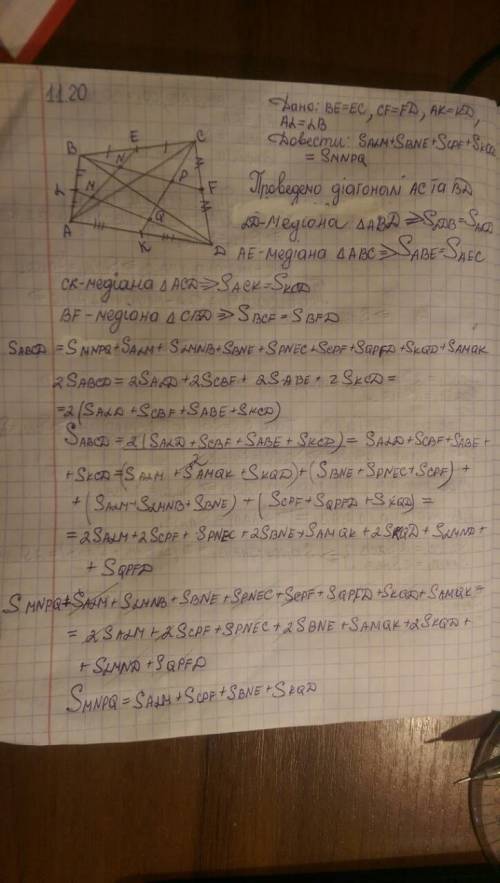 11.20
Дано: BE=EC, CF=FD, AK=KD,
AL=LB
Довести: SALM+SBNE+SCPF+SKQD
=SMNPQ
B E C
N P
L M F
Q
A K D
Проведено діагоналі AC та BD
LD-медіана △ABD ⇒ SLDB=SALD
AE-медіана △ABC ⇒ SABE=SAEC
CK-медіана △ACD ⇒ SACK=SKCD
BF-медіана △CBD ⇒ SBCF=SBFD
SABCD=SMNPQ+SALM+SLMNB+SBNE+SPNEC+SCPF+SQPFD+SKQD+SAMQK
2SABCD=2SALD+2SCBF+2SABE+2SKCD=
=2(SALD+SCBF+SABE+SKCD)
SABCD=2(SALD+SCBF+SABE+SKCD)=SALD+SCBF+SABE+
2
+SKCD=(SALM+SAMQK+SKQD)+(SBNE+SPNEC+SCPF)+
+(SALM+SLMNB+SBNE)+(SCPF+SQPFD+SKQD)=
=2SALM+2SCPF+SPNEC+2SBNE+SAMQK+2SKQD+SLMND+
+SQPFD
SMNPQ+SALM+SLMNB+SBNE+SPNEC+SCPF+SQPFD+SKQD+SAMQK=
=2SALM+2SCPF+SPNEC+2SBNE+SAMQK+2SKQD+
+SLMND+SQPFD
SMNPQ=SALM+SCPF+SBNE+SKQD